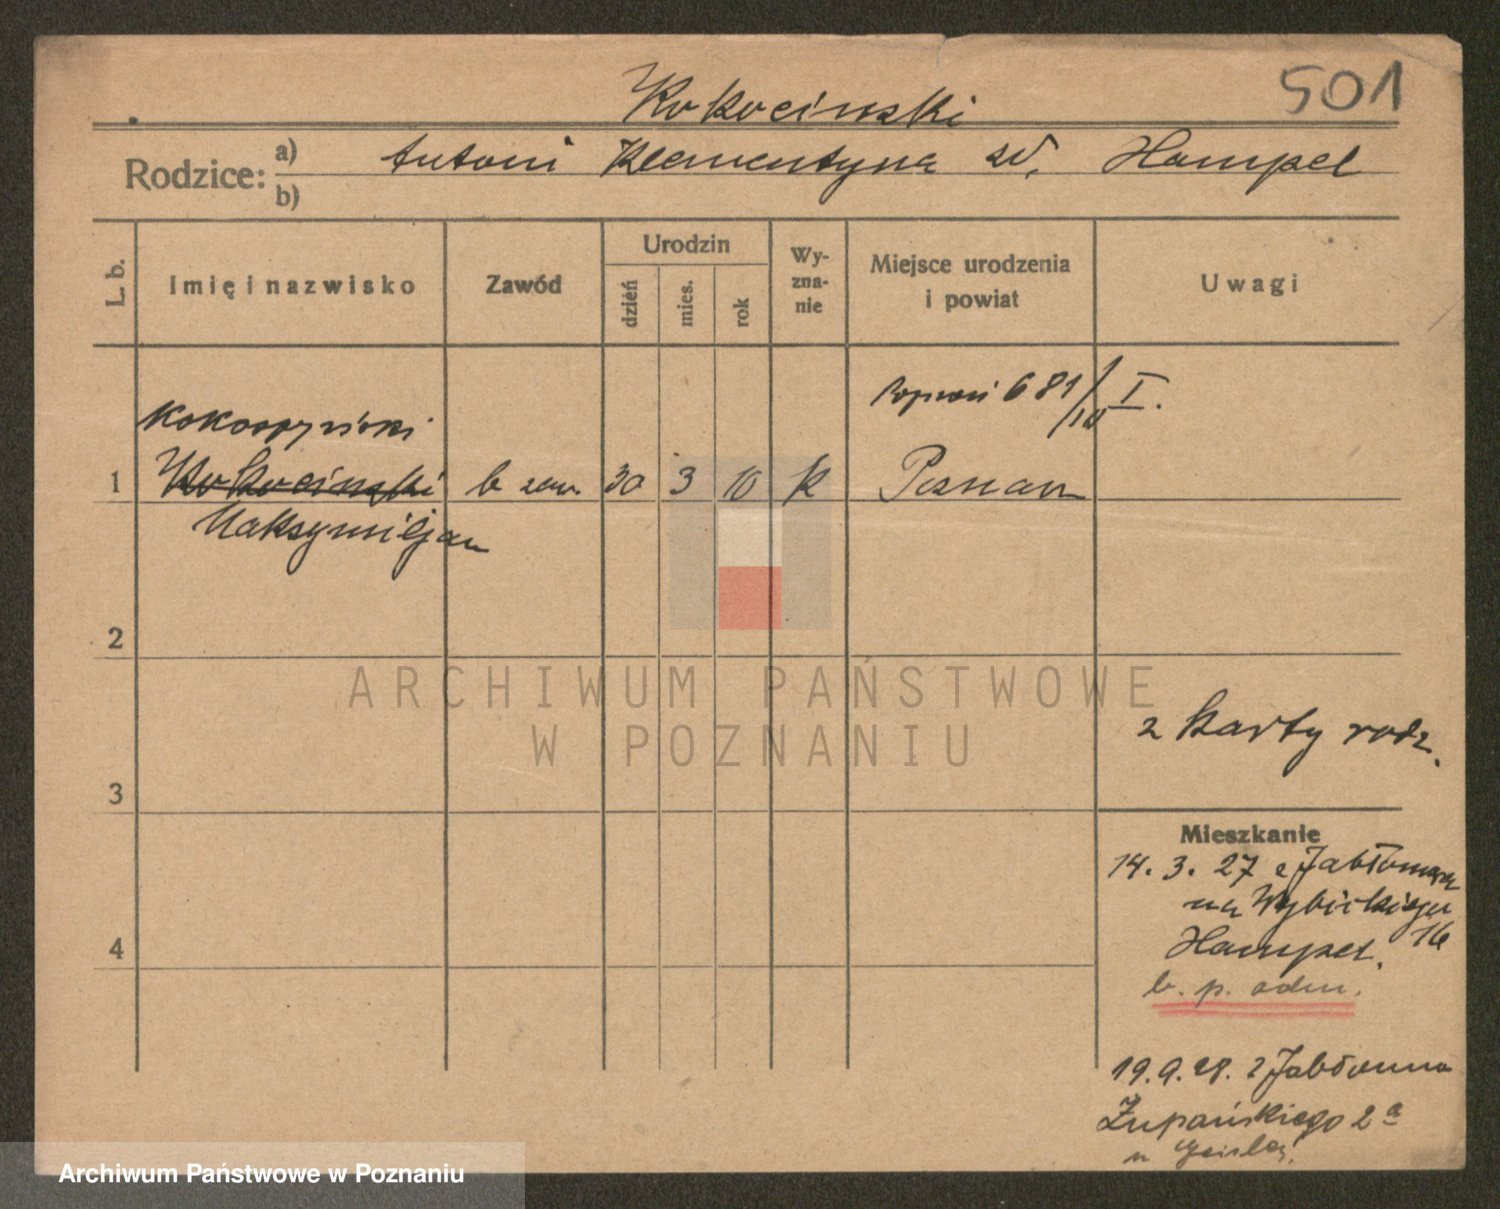 501
Kokocinski
Rodzice: a) b)
Antoni Klementyna zd. Hampel
L. b.
Imię i nazwisko
Zawód
Urodzin
dzień
mies.
rok
Wy-
zna-
nie
Miejsce urodzenia
i powiat
Uwagi
681/10 I.
1
Kokocinski
b zaw.
30
3
10
k
Poznan
Maksymiljan
2
z karty rodz.
3
Mieszkanie
14. 3. 27 z Jabłonna
na Wybickiego
16
Hampel.
4
b. p. adm.
19. 9. 28. z Jabłonna
Żupańskiego 2a
u
ARCHIWUM PAŃSTWOWE
W POZNANIU
Archiwum Państwowe w Poznaniu